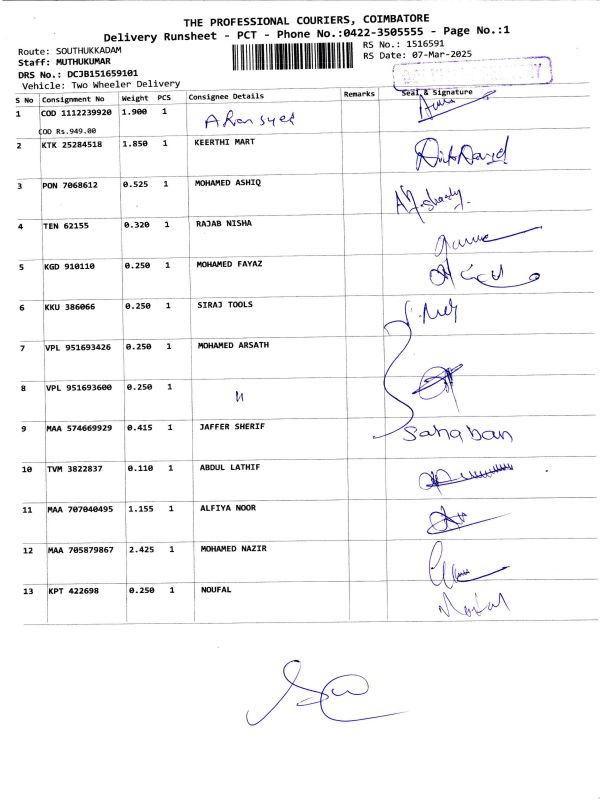 THE PROFESSIONAL COURIERS, COIMBATORE
Delivery Runsheet - PCT - Phone No.:0422-3505555 - Page No.:1
Route: SOUTHUKKADAM
RS No.: 1516591
Staff: MUTHUKUMAR
RS Date: 07-Mar-2025
DRS No.: DCJB151659101
Vehicle: Two Wheeler Delivery
S No Consignment No Weight PCS Consignee Details Remarks Seal & Signature
1 COD 1112239920 1.900 1
COD Rs.949.00
2 KTK 25284518 1.850 1 KEERTHI MART
3 PON 7068612 0.525 1 MOHAMED ASHIQ
4 TEN 62155 0.320 1 RAJAB NISHA
5 KGD 910110 0.250 1 MOHAMED FAYAZ
6 KKU 386066 0.250 1 SIRAJ TOOLS
7 VPL 951693426 0.250 1 MOHAMED ARSATH
8 VPL 951693600 0.250 1 "
9 MAA 574669929 0.415 1 JAFFER SHERIF Sahaban
10 TVM 3822837 0.110 1 ABDUL LATHIF
11 MAA 707040495 1.155 1 ALFIYA NOOR
12 MAA 705879867 2.425 1 MOHAMED NAZIR
13 KPT 422698 0.250 1 NOUFAL Noufal